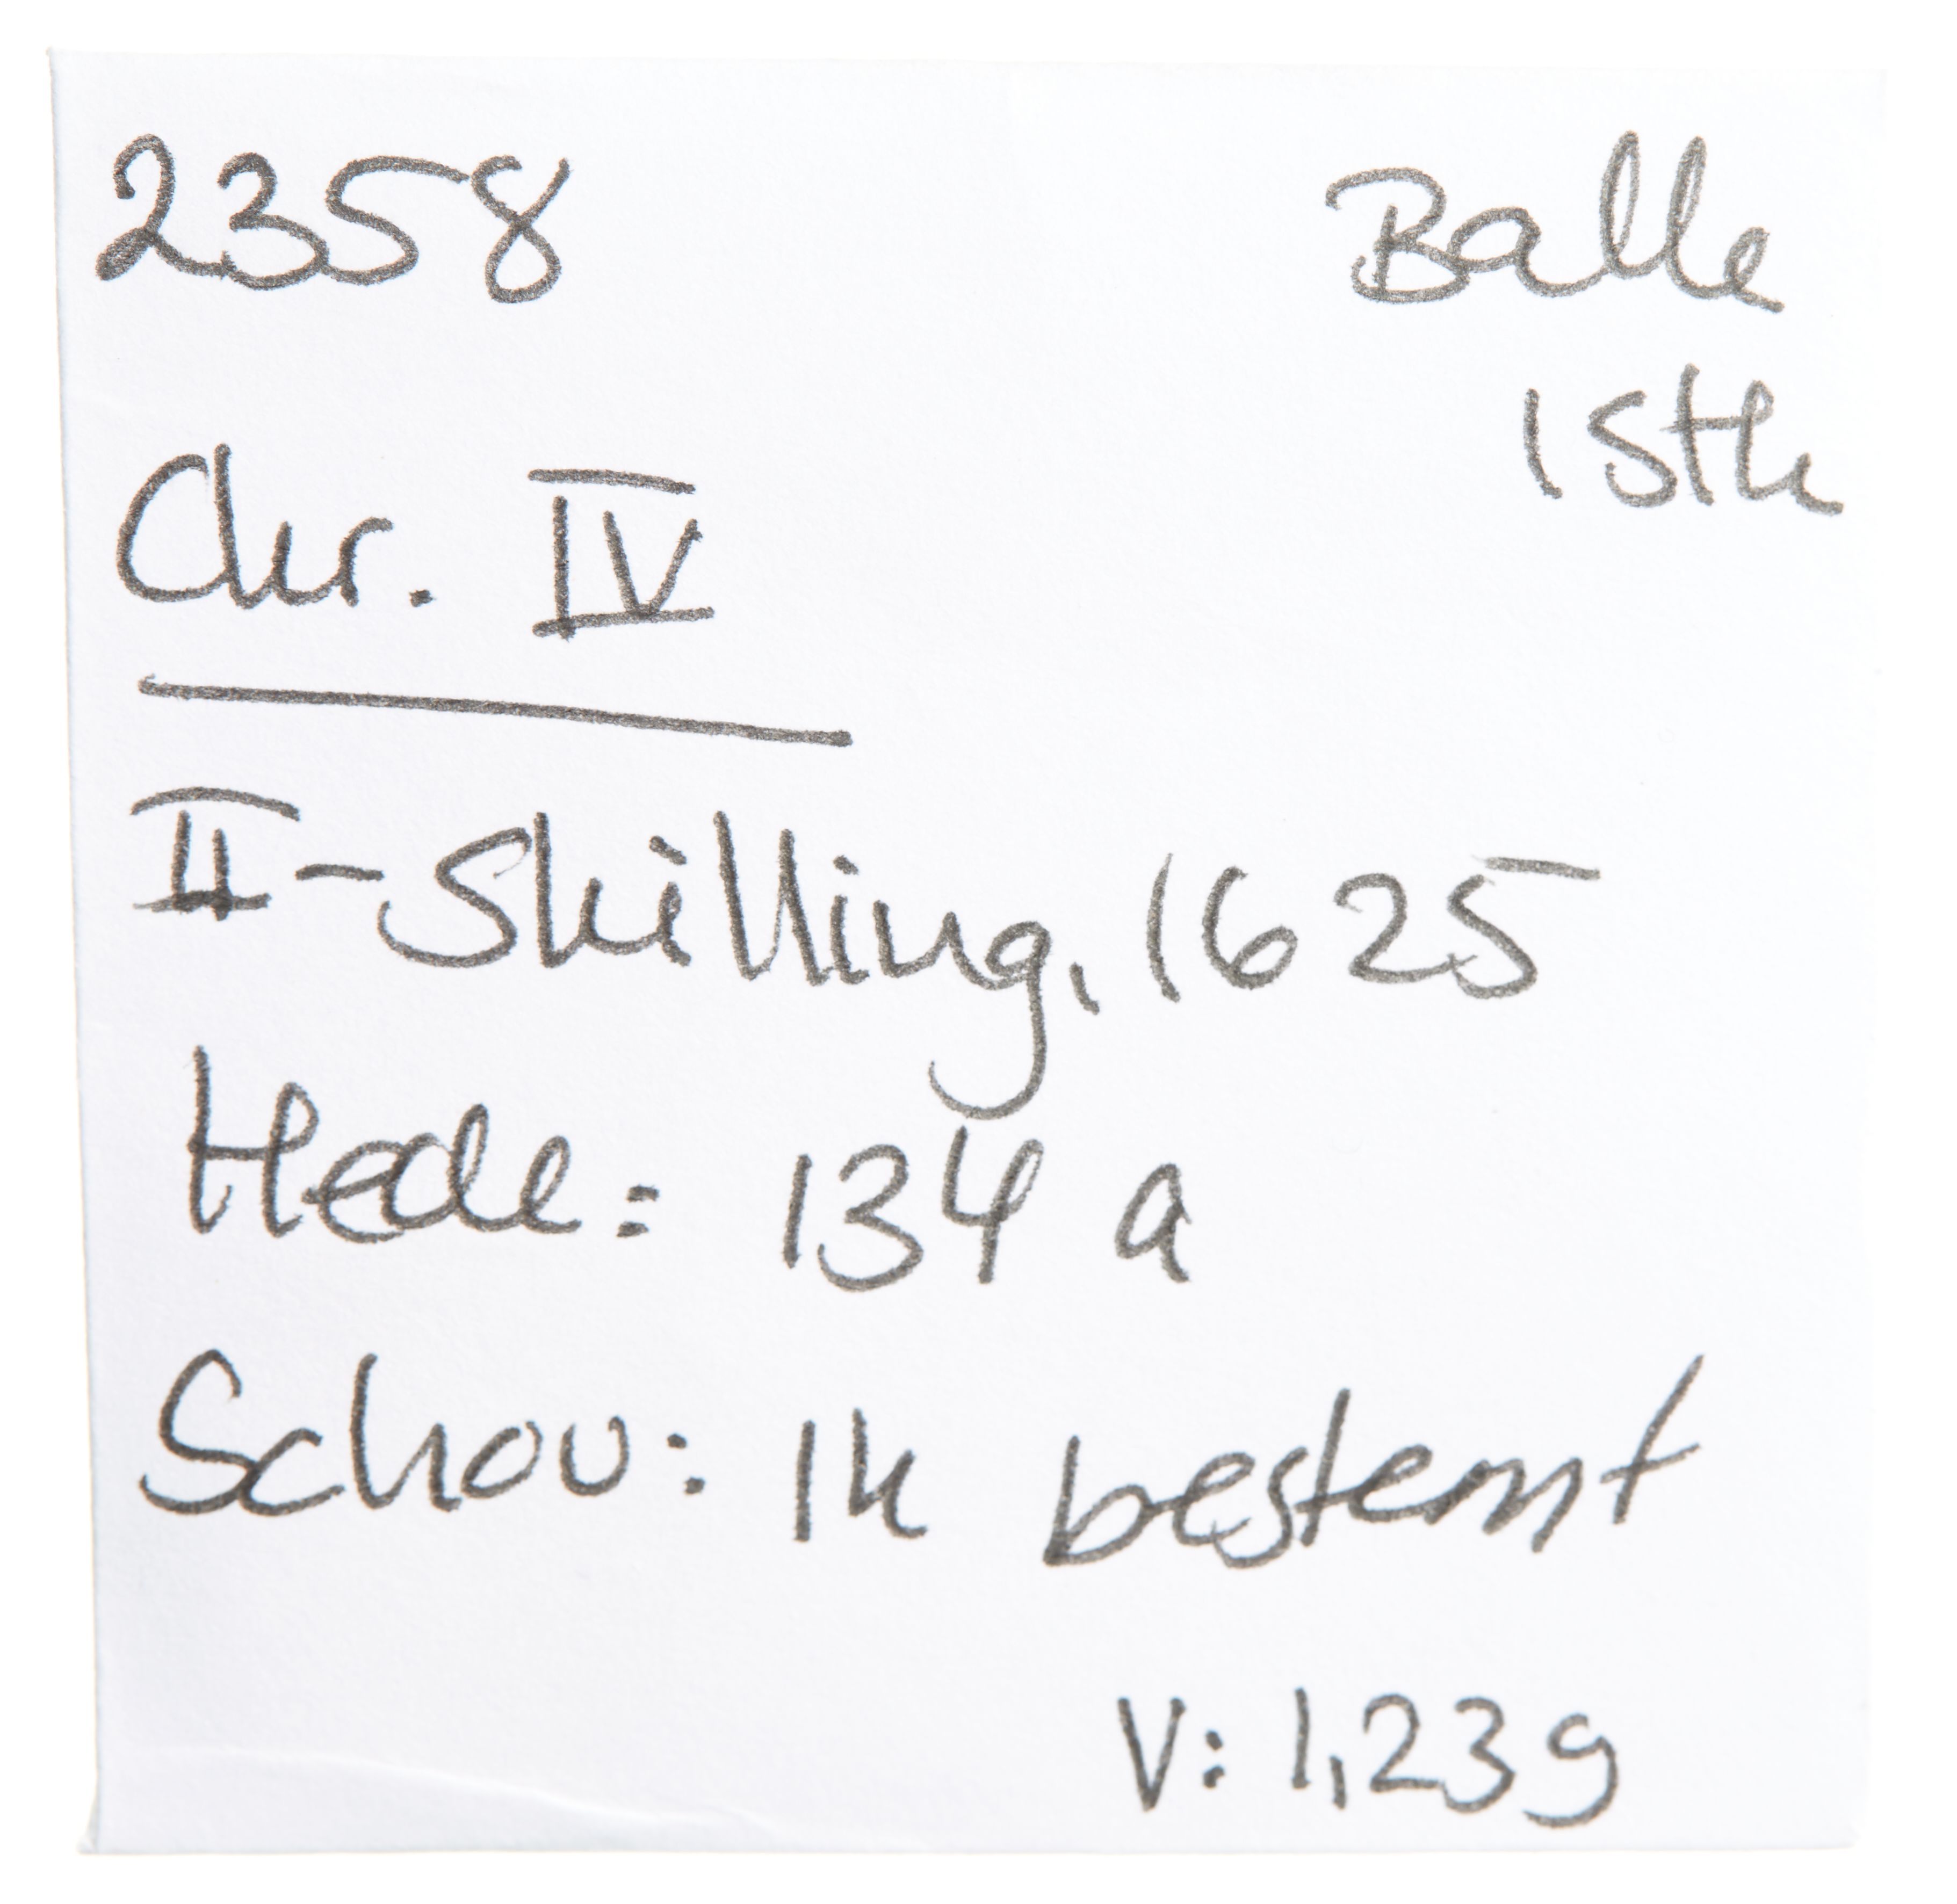 2358
Balle
1 stk
Chr. IV
II-Skilling, 1625
Hede: 134 a
Schou: Ik bestemt
V: 1,23g